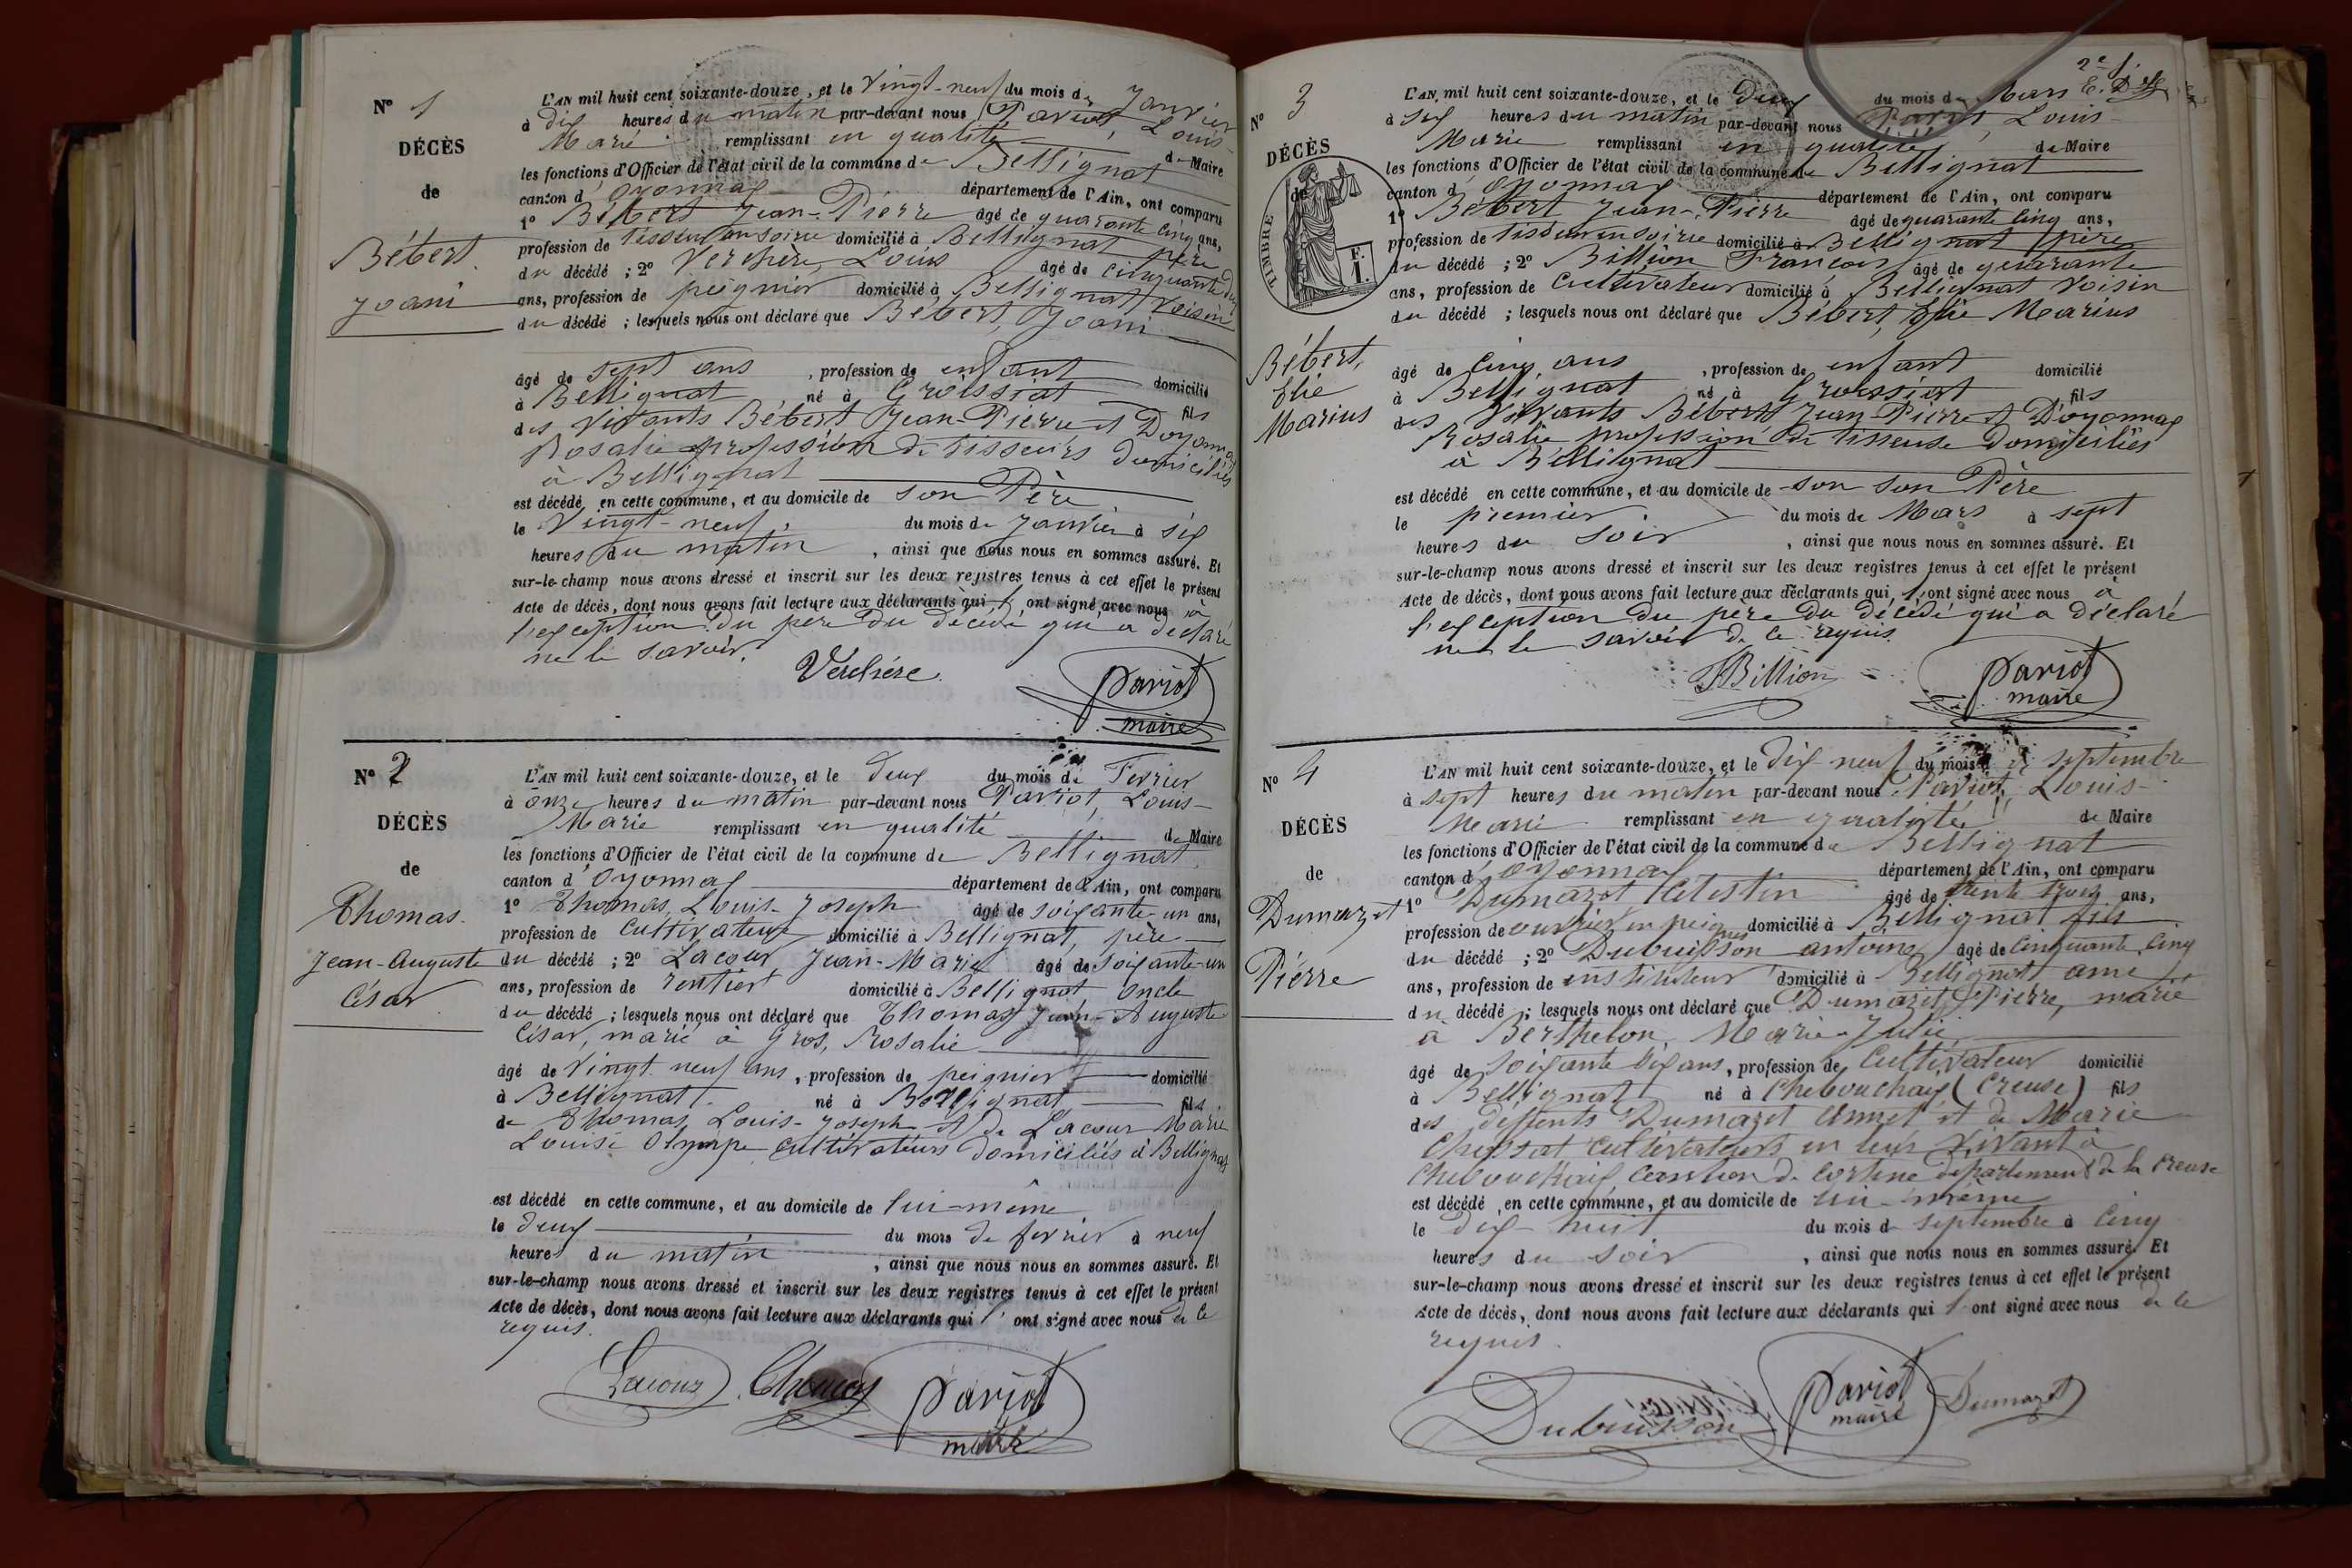 N° 1
DÉCÈS
de
Bébert
Joani
L'AN mil huit cent soixante-douze, et le Vingt-neuf du mois de Janvier
à dix heures du matin par-devant nous Pariot, Louis-
Marie remplissant en qualité de Maire
les fonctions d'Officier de l'état civil de la commune de Bellignat
canton d'Oyonnax département de l'Ain, ont comparu
1° Bébert Jean-Pierre âgé de quarante cinq ans,
profession de tisseur en soirie domicilié à Bellignat père
du décédé ; 2° Verchère Louis âgé de cinquante deux
ans, profession de peignier domicilié à Bellignat voisin
du décédé ; lesquels nous ont déclaré que Bébert, Joani
âgé de sept ans , profession de enfant domicilié
à Bellignat né à Groissiat fils
des vivants Bébert Jean-Pierre et Doyonnax
Rosalie profession de tisseurs domiciliés
à Bellignat
est décédé en cette commune, et au domicile de son Père
le Vingt-neuf du mois de Janvier à six
heures du matin , ainsi que nous nous en sommes assuré. Et
sur-le-champ nous avons dressé et inscrit sur les deux registres tenus à cet effet le présent
Acte de décès, dont nous avons fait lecture aux déclarants qui l' ont signé avec nous à
l'exception du père du décédé qui a déclaré
ne le savoir.
Verchère
Pariot
maire
N° 2
DÉCÈS
de
Thomas
Jean-Auguste
César
L'AN mil huit cent soixante-douze, et le deux du mois de Fevrier
à onze heures du matin par-devant nous Pariot, Louis-
Marie remplissant en qualité de Maire
les fonctions d'Officier de l'état civil de la commune de Bellignat
canton d'Oyonnax département de l'Ain, ont comparu
1° Thomas, Louis-Joseph âgé de soixante-un ans,
profession de Cultivateur domicilié à Bellignat, père
du décédé ; 2° Lacour Jean-Marie âgé de soixante-un
ans, profession de rentiert domicilié à Bellignat Oncle
du décédé ; lesquels nous ont déclaré que Thomas Jean-Auguste
César, marié à Gros, Rosalie
âgé de Vingt neuf ans , profession de peignier domicilié
à Bellignat né à Bellignat fils
de Thomas, Louis-Joseph et de Lacour Marie
Louise Olympe cultivateurs domiciliés à Bellignat
est décédé en cette commune, et au domicile de lui-même
le deux du mois de fevrier à neuf
heures du matin , ainsi que nous nous en sommes assuré. Et
sur-le-champ nous avons dressé et inscrit sur les deux registres tenus à cet effet le présent
Acte de décès, dont nous avons fait lecture aux déclarants qui l' ont signé avec nous de ce
requis.
Lacour Thomas Pariot
maire
2e f.
N° 3
DÉCÈS
de
TIMBRE
F.
1.
Bébert,
Elie
Marius
L'AN mil huit cent soixante-douze, et le Deux du mois de Mars
à six heures du matin par-devant nous Pariot, Louis-
Marie remplissant en qualité de Maire
les fonctions d'Officier de l'état civil de la commune de Bellignat
canton d'Oyonnax département de l'Ain, ont comparu
1° Bébert Jean-Pierre âgé de quarante cinq ans,
profession de tisseur en soirie domicilié à Bellignat père
du décédé ; 2° Billion François âgé de quarante
ans, profession de Cultivateur domicilié à Bellignat voisin
du décédé ; lesquels nous ont déclaré que Bébert, Elie Marius
âgé de Cinq ans , profession de enfant domicilié
à Bellignat né à Groissiat fils
des Vivants Bébert Jean-Pierre et D'oyonnax
Rosalie profession de tisseuse domiciliés
à Bellignat
est décédé en cette commune, et au domicile de son son Père
le premier du mois de Mars à sept
heures du soir , ainsi que nous nous en sommes assuré. Et
sur-le-champ nous avons dressé et inscrit sur les deux registres tenus à cet effet le présent
Acte de décès, dont nous avons fait lecture aux déclarants qui l' ont signé avec nous à
l'exception du père du décédé qui a déclaré
ne le savoir de ce requis.
Billion
Pariot
maire
N° 4
DÉCÈS
de
Dumazet
Pierre
L'AN mil huit cent soixante-douze, et le dix neuf du mois de septembre
à sept heures du matin par-devant nous Pariot, Louis-
Marie remplissant en qualité de Maire
les fonctions d'Officier de l'état civil de la commune de Bellignat
canton d'Oyonnax département de l'Ain, ont comparu
1° Dumazet Célestin âgé de trente trois ans,
profession de ouvrier en peignes domicilié à Bellignat fils
du décédé ; 2° Dubuisson antoine âgé de Cinquante Cinq
ans, profession de instituteur domicilié à Bellignat ami
du décédé ; lesquels nous ont déclaré que Dumazet, Pierre, marié
à Berthelon, Marie-Julie
âgé de soixante dix ans, profession de Cultivateur domicilié
à Bellignat né à Chebouchaix (Creuse) fils
des deffents Dumazet Annet et de Marie
cultivateurs en leur vivant à
Chebouchaix département de la Creuse
est décédé en cette commune, et au domicile de lui-même
le dix-huit du mois de septembre à Cinq
heures du soir , ainsi que nous nous en sommes assuré. Et
sur-le-champ nous avons dressé et inscrit sur les deux registres tenus à cet effet le présent
Acte de décès, dont nous avons fait lecture aux déclarants qui l' ont signé avec nous de ce
requis.
Dubuisson Pariot Dumazet
maire